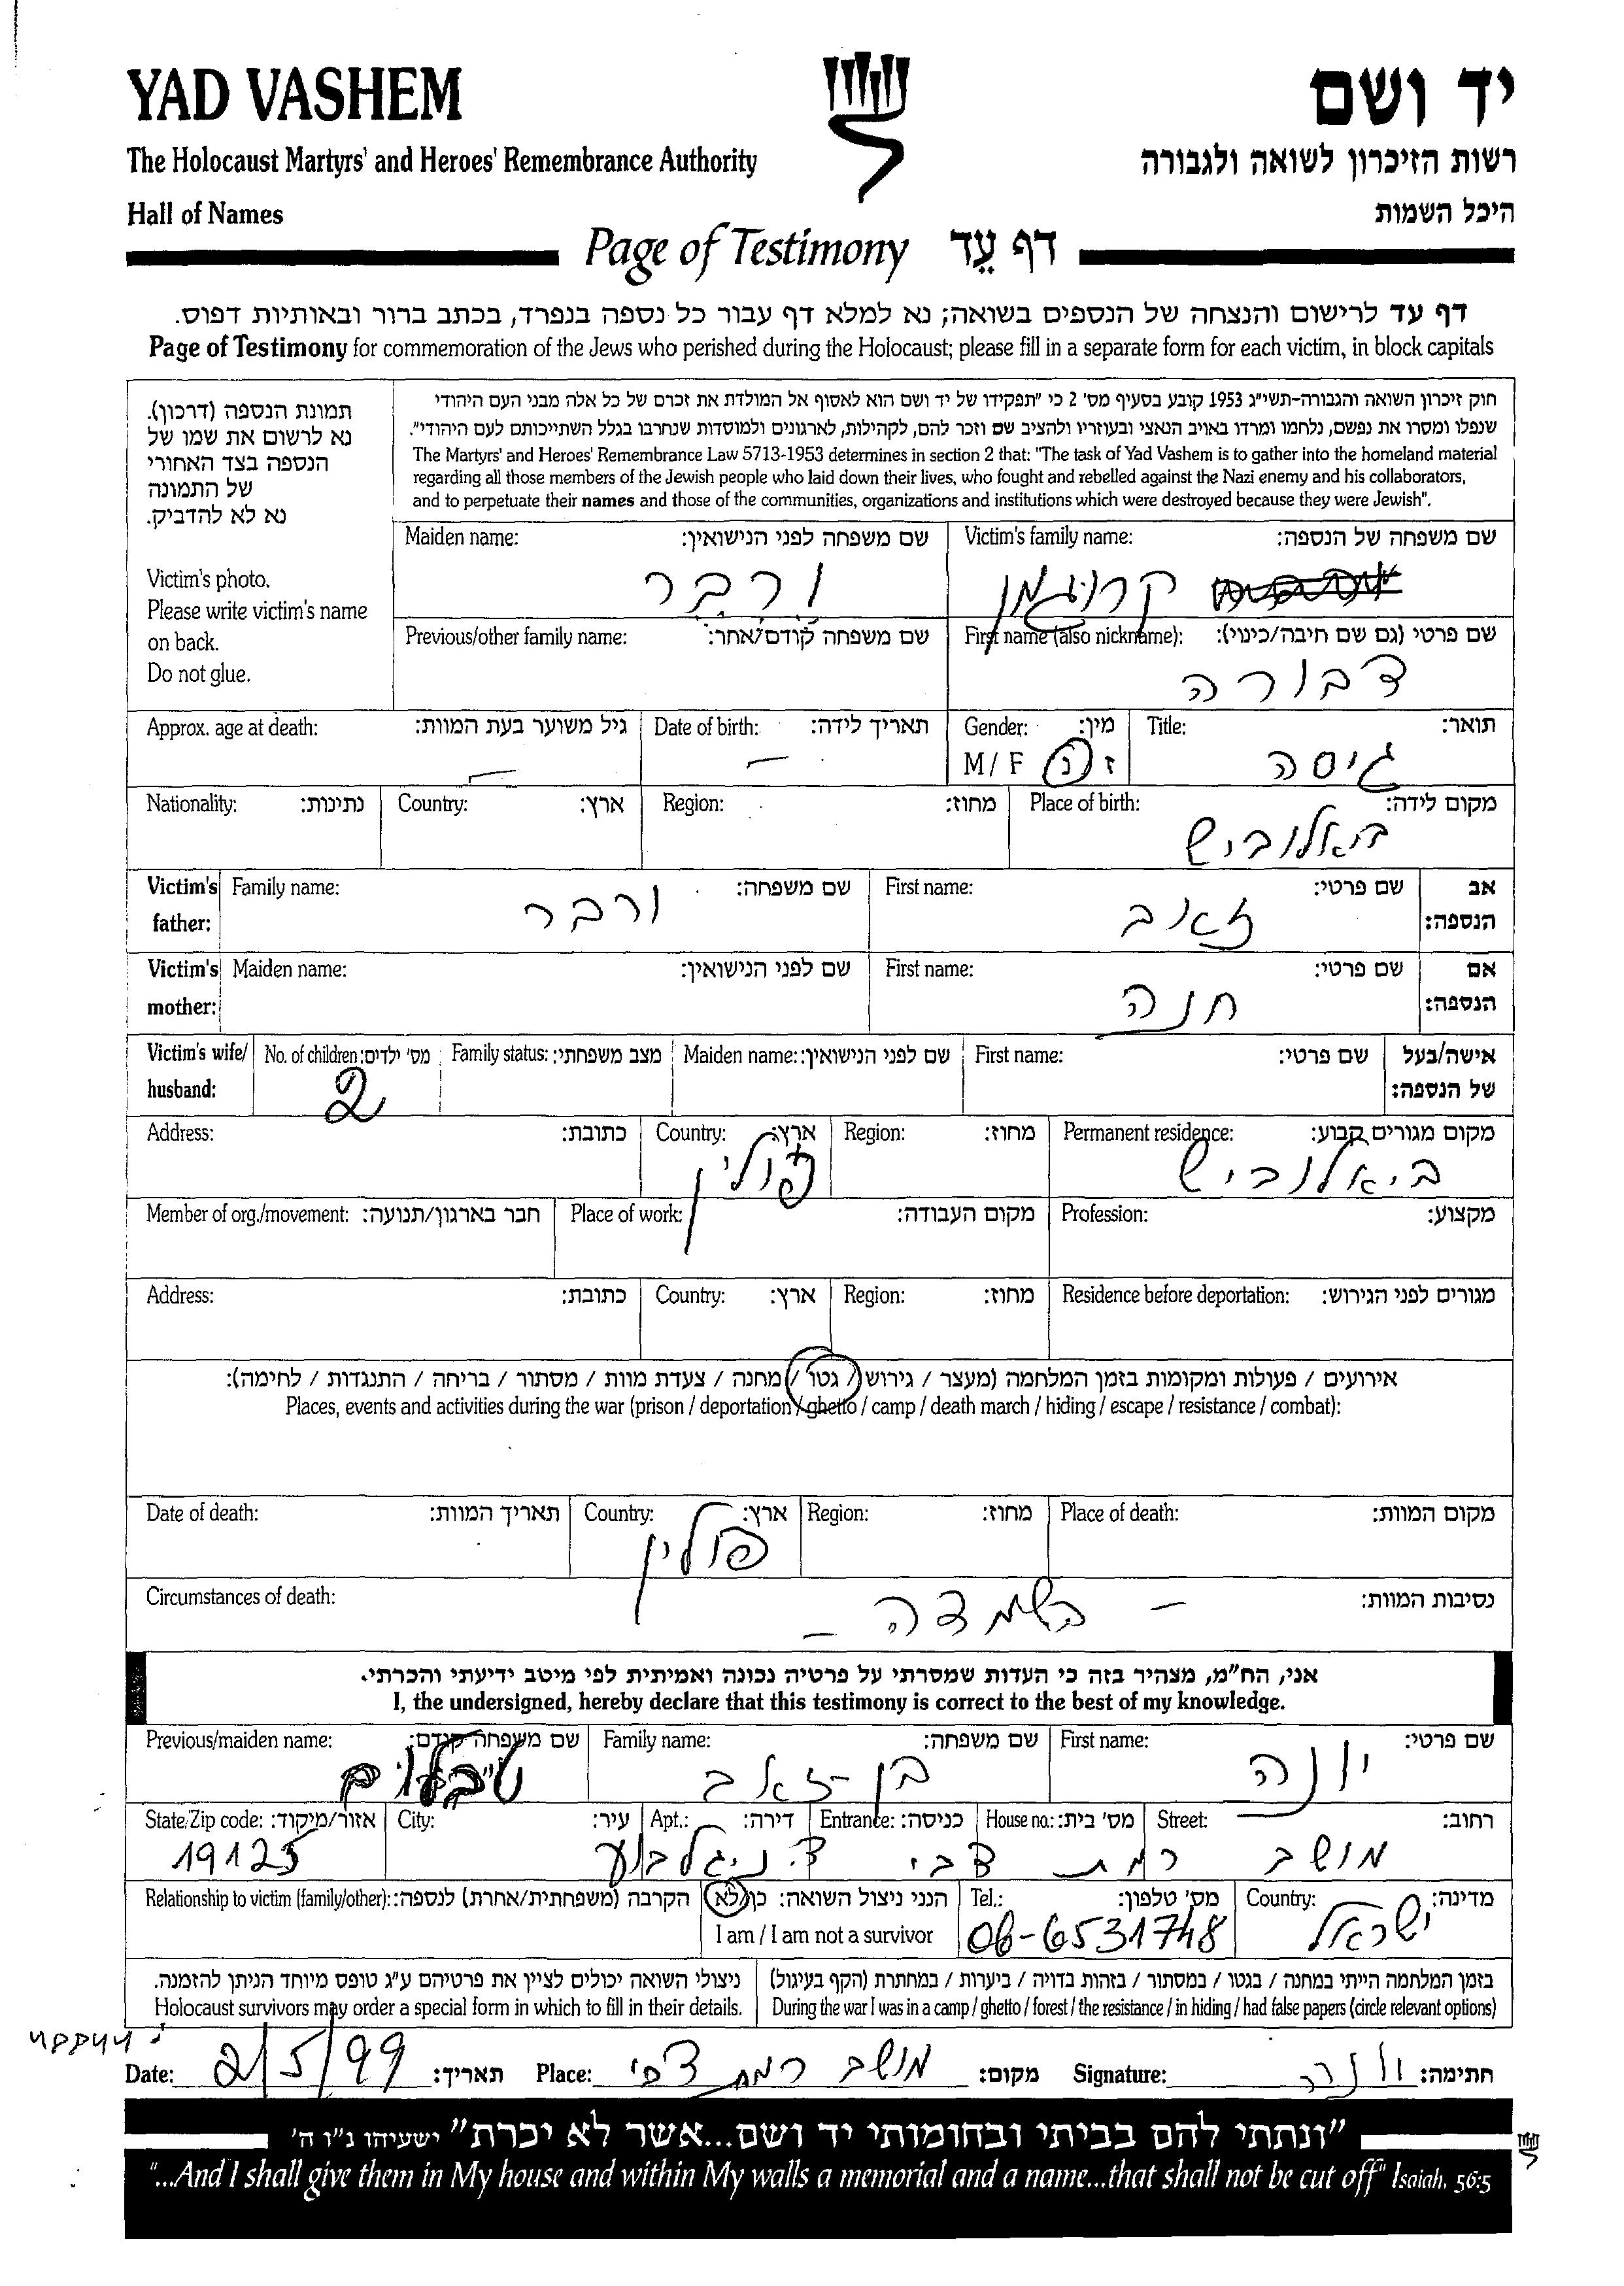 YAD VASHEM יד ושם
The Holocaust Martyrs' and Heroes' Remembrance Authority רשות הזיכרון לשואה ולגבורה
Hall of Names היכל השמות
Page of Testimony דף עֵד
דף עד לרישום והנצחה של הנספים בשואה; נא למלא דף עבור כל נספה בנפרד, בכתב ברור ובאותיות דפוס.
Page of Testimony for commemoration of the Jews who perished during the Holocaust; please fill in a separate form for each victim, in block capitals
תמונת הנספה (דרכון).
נא לרשום את שמו של
הנספה בצד האחורי
של התמונה
נא לא להדביק.
Victim's photo.
Please write victim's name
on back.
Do not glue.
חוק זיכרון השואה והגבורה-תשי"ג 1953 קובע בסעיף מס' 2 כי "תפקידו של יד ושם הוא לאסוף אל המולדת את זכרם של כל אלה מבני העם היהודי
שנפלו ומסרו את נפשם, נלחמו ומרדו באויב הנאצי ובעוזריו ולהציב שם וזכר להם, לקהילות, לארגונים ולמוסדות שנחרבו בגלל השתייכותם לעם היהודי".
The Martyrs' and Heroes' Remembrance Law 5713-1953 determines in section 2 that: "The task of Yad Vashem is to gather into the homeland material
regarding all those members of the Jewish people who laid down their lives, who fought and rebelled against the Nazi enemy and his collaborators,
and to perpetuate their names and those of the communities, organizations and institutions which were destroyed because they were Jewish".
Victim's family name: שם משפחה של הנספה: Maiden name: שם משפחה לפני הנישואין:
קרוגמן ורבר
First name (also nickname): שם פרטי (גם שם חיבה/כינוי): Previous/other family name: שם משפחה קודם/אחר:
דבורה
Title: תואר: Gender: מין: Date of birth: תאריך לידה: Approx. age at death: גיל משוער בעת המוות:
גיסה M / F ז נ – –
Place of birth: מקום לידה: Region: מחוז: Country: ארץ: Nationality: נתינות:
ביאלוביש
אב First name: שם פרטי: Family name: שם משפחה: Victim's
הנספה: זאב ורבר father:
אם First name: שם פרטי: Maiden name: שם לפני הנישואין: Victim's
הנספה: חנה mother:
אישה/בעל First name: שם פרטי: Maiden name: שם לפני הנישואין: Family status: מצב משפחתי: No. of children: מס' ילדים: Victim's wife/
של הנספה: 2 husband:
Permanent residence: מקום מגורים קבוע: Region: מחוז: Country: ארץ: Address: כתובת:
ביאלוביש פולין
Profession: מקצוע: Place of work: מקום העבודה: Member of org./movement: חבר בארגון/תנועה:
Residence before deportation: מגורים לפני הגירוש: Region: מחוז: Country: ארץ: Address: כתובת:
אירועים / פעולות ומקומות בזמן המלחמה (מעצר / גירוש / גטו / מחנה / צעדת מוות / מסתור / בריחה / התנגדות / לחימה):
Places, events and activities during the war (prison / deportation / ghetto / camp / death march / hiding / escape / resistance / combat):
Place of death: מקום המוות: Region: מחוז: Country: ארץ: Date of death: תאריך המוות:
פולין
Circumstances of death: נסיבות המוות:
– בשמדה –
אני, הח"מ, מצהיר בזה כי העדות שמסרתי על פרטיה נכונה ואמיתית לפי מיטב ידיעתי והכרתי.
I, the undersigned, hereby declare that this testimony is correct to the best of my knowledge.
First name: שם פרטי: Family name: שם משפחה: Previous/maiden name: שם משפחה קודם:
יונה בן-זאב
Street: רחוב: House no.: מס' בית: Entrance: כניסה: Apt.: דירה: City: עיר: State/Zip code: אזור/מיקוד:
מושב רמת צבי ד.נ גלבוע 19125
Country: מדינה: Tel.: מס' טלפון: הנני ניצול השואה: כן/לא Relationship to victim (family/other): הקרבה (משפחתית/אחרת) לנספה:
ישראל 06-6531748 I am / I am not a survivor
בזמן המלחמה הייתי במחנה / בגטו / במסתור / בזהות בדויה / ביערות / במחתרת (הקף בעיגול) ניצולי השואה יכולים לציין את פרטיהם ע"ג טופס מיוחד הניתן להזמנה.
During the war I was in a camp / ghetto / forest / the resistance / in hiding / had false papers (circle relevant options) Holocaust survivors may order a special form in which to fill in their details.
Date: 2/5/99 תאריך: Place: מושב רמת צבי מקום: Signature: יונה חתימה:
"ונתתי להם בביתי ובחומותי יד ושם...אשר לא יכרת" ישעיהו נ"ו ה'
"...And I shall give them in My house and within My walls a memorial and a name...that shall not be cut off" Isaiah, 56:5